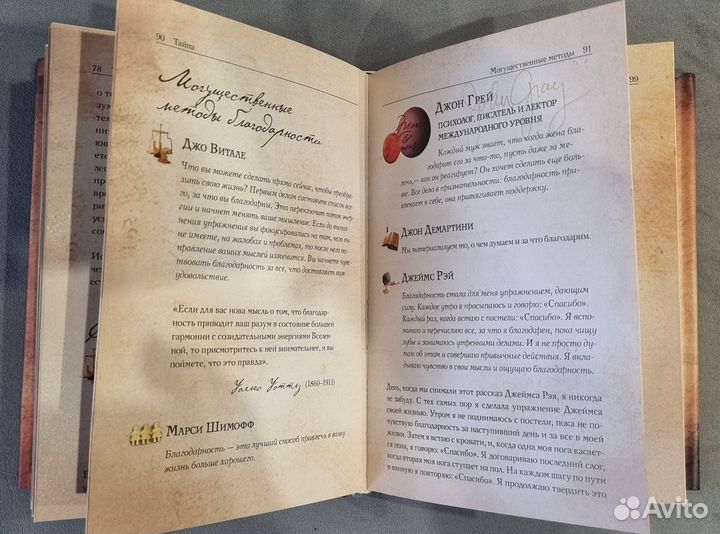 78
о т
зум
ств
Ис
90 Тайна
Могущественные
методы благодарности
Джо Витале
Что вы можете сделать прямо сейчас, чтобы преобра-
зить свою жизнь? Первым делом составьте список всего,
за что вы благодарны. Это переключит поток энер-
гии и начнет менять ваше мышление. Если до выпол-
нения упражнения вы фокусировались на том, чего вы
не имеете, на жалобах и проблемах, то после него на-
правление ваших мыслей изменится. Вы начнете чувс-
твовать благодарность за все, что доставляет вам
удовольствие.
«Если для вас нова мысль о том, что благодар-
ность приводит ваш разум в состояние большей
гармонии с созидательными энергиями Вселен-
ной, то присмотритесь к ней внимательнее, и вы
поймете, что это правда».
Уоллес Уоттлз (1860-1911)
Марси Шимофф
Благодарность — это лучший способ привлечь в вашу
жизнь больше хорошего.
Могущественные методы 91
Джон Грей
психолог, писатель и лектор
международного уровня
Каждый муж знает, что когда жена благо-
дарит его за что-то, пусть даже за ме-
лочь,— как он реагирует? Он хочет сделать еще боль-
ше. Все дело в признательности: благодарность при-
влекает к себе, она притягивает поддержку.
Джон Демартини
Мы материализуем то, о чем думаем и за что благодарим.
Джеймс Рэй
Благодарность стала для меня упражнением, дающим
силу. Каждое утро я просыпаюсь и говорю: «Спасибо».
Каждый раз, когда встаю с постели: «Спасибо». Я вспо-
минаю и перечисляю все, за что я благодарен, пока чищу
зубы и занимаюсь утренними делами. И я не просто ду-
маю об этом и совершаю привычные действия. Я вкла-
дываю чувство в свои мысли и ощущаю благодарность.
День, когда мы снимали этот рассказ Джеймса Рэя, я никогда
не забуду. С тех самых пор я сделала упражнение Джеймса
своей жизнью. Утром я не поднимаюсь с постели, пока не по-
чувствую благодарность за наступивший день и за все в моей
жизни. Затем я встаю с кровати, и, когда одна моя нога касает-
ся пола, я говорю: «Спасибо». Я договариваю последний слог,
когда вторая моя нога ступает на пол. На каждом шагу по пути
в ванную я повторяю: «Спасибо». Я продолжаю твердить это
99
Avito